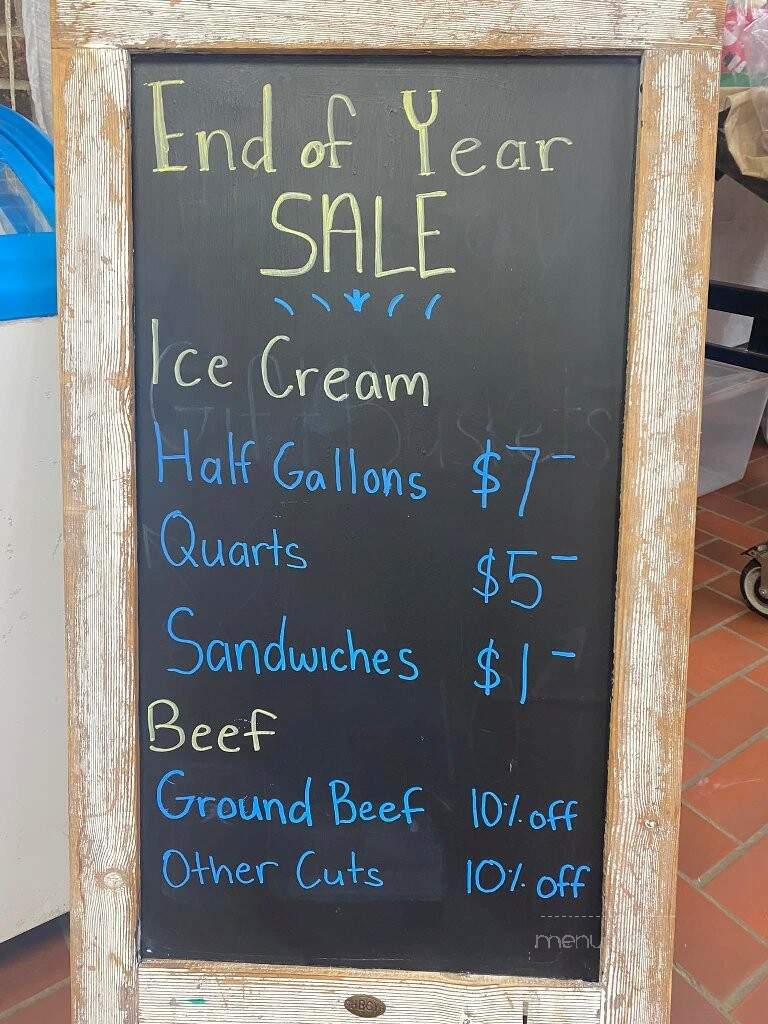 End of Year
SALE
Ice Cream
Half Gallons $7-
Quarts $5-
Sandwiches $1-
Beef
Ground Beef 10% off
Other Cuts 10% off
menu